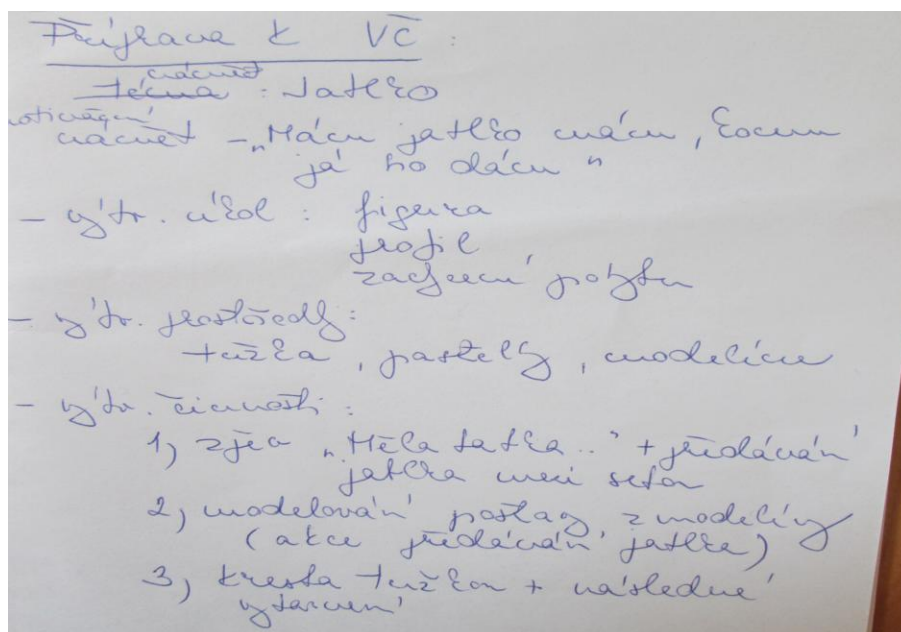 Příprava k VČ:
námět
téma : Jablko
motivační
námět - „Mám jablko mám, komu
já ho dám"
- výtv. úkol : figura
profil
zachycení pohybu
- výtv. prostředky:
tužka, pastely, modelína
- výtv. činnosti :
1, zpěv „Měla babka.." + předávání
jablka mezi sebou
2, modelování postavy z modelíny
(akce předávání jablka)
3, kresba tužkou + následné
vybarvení